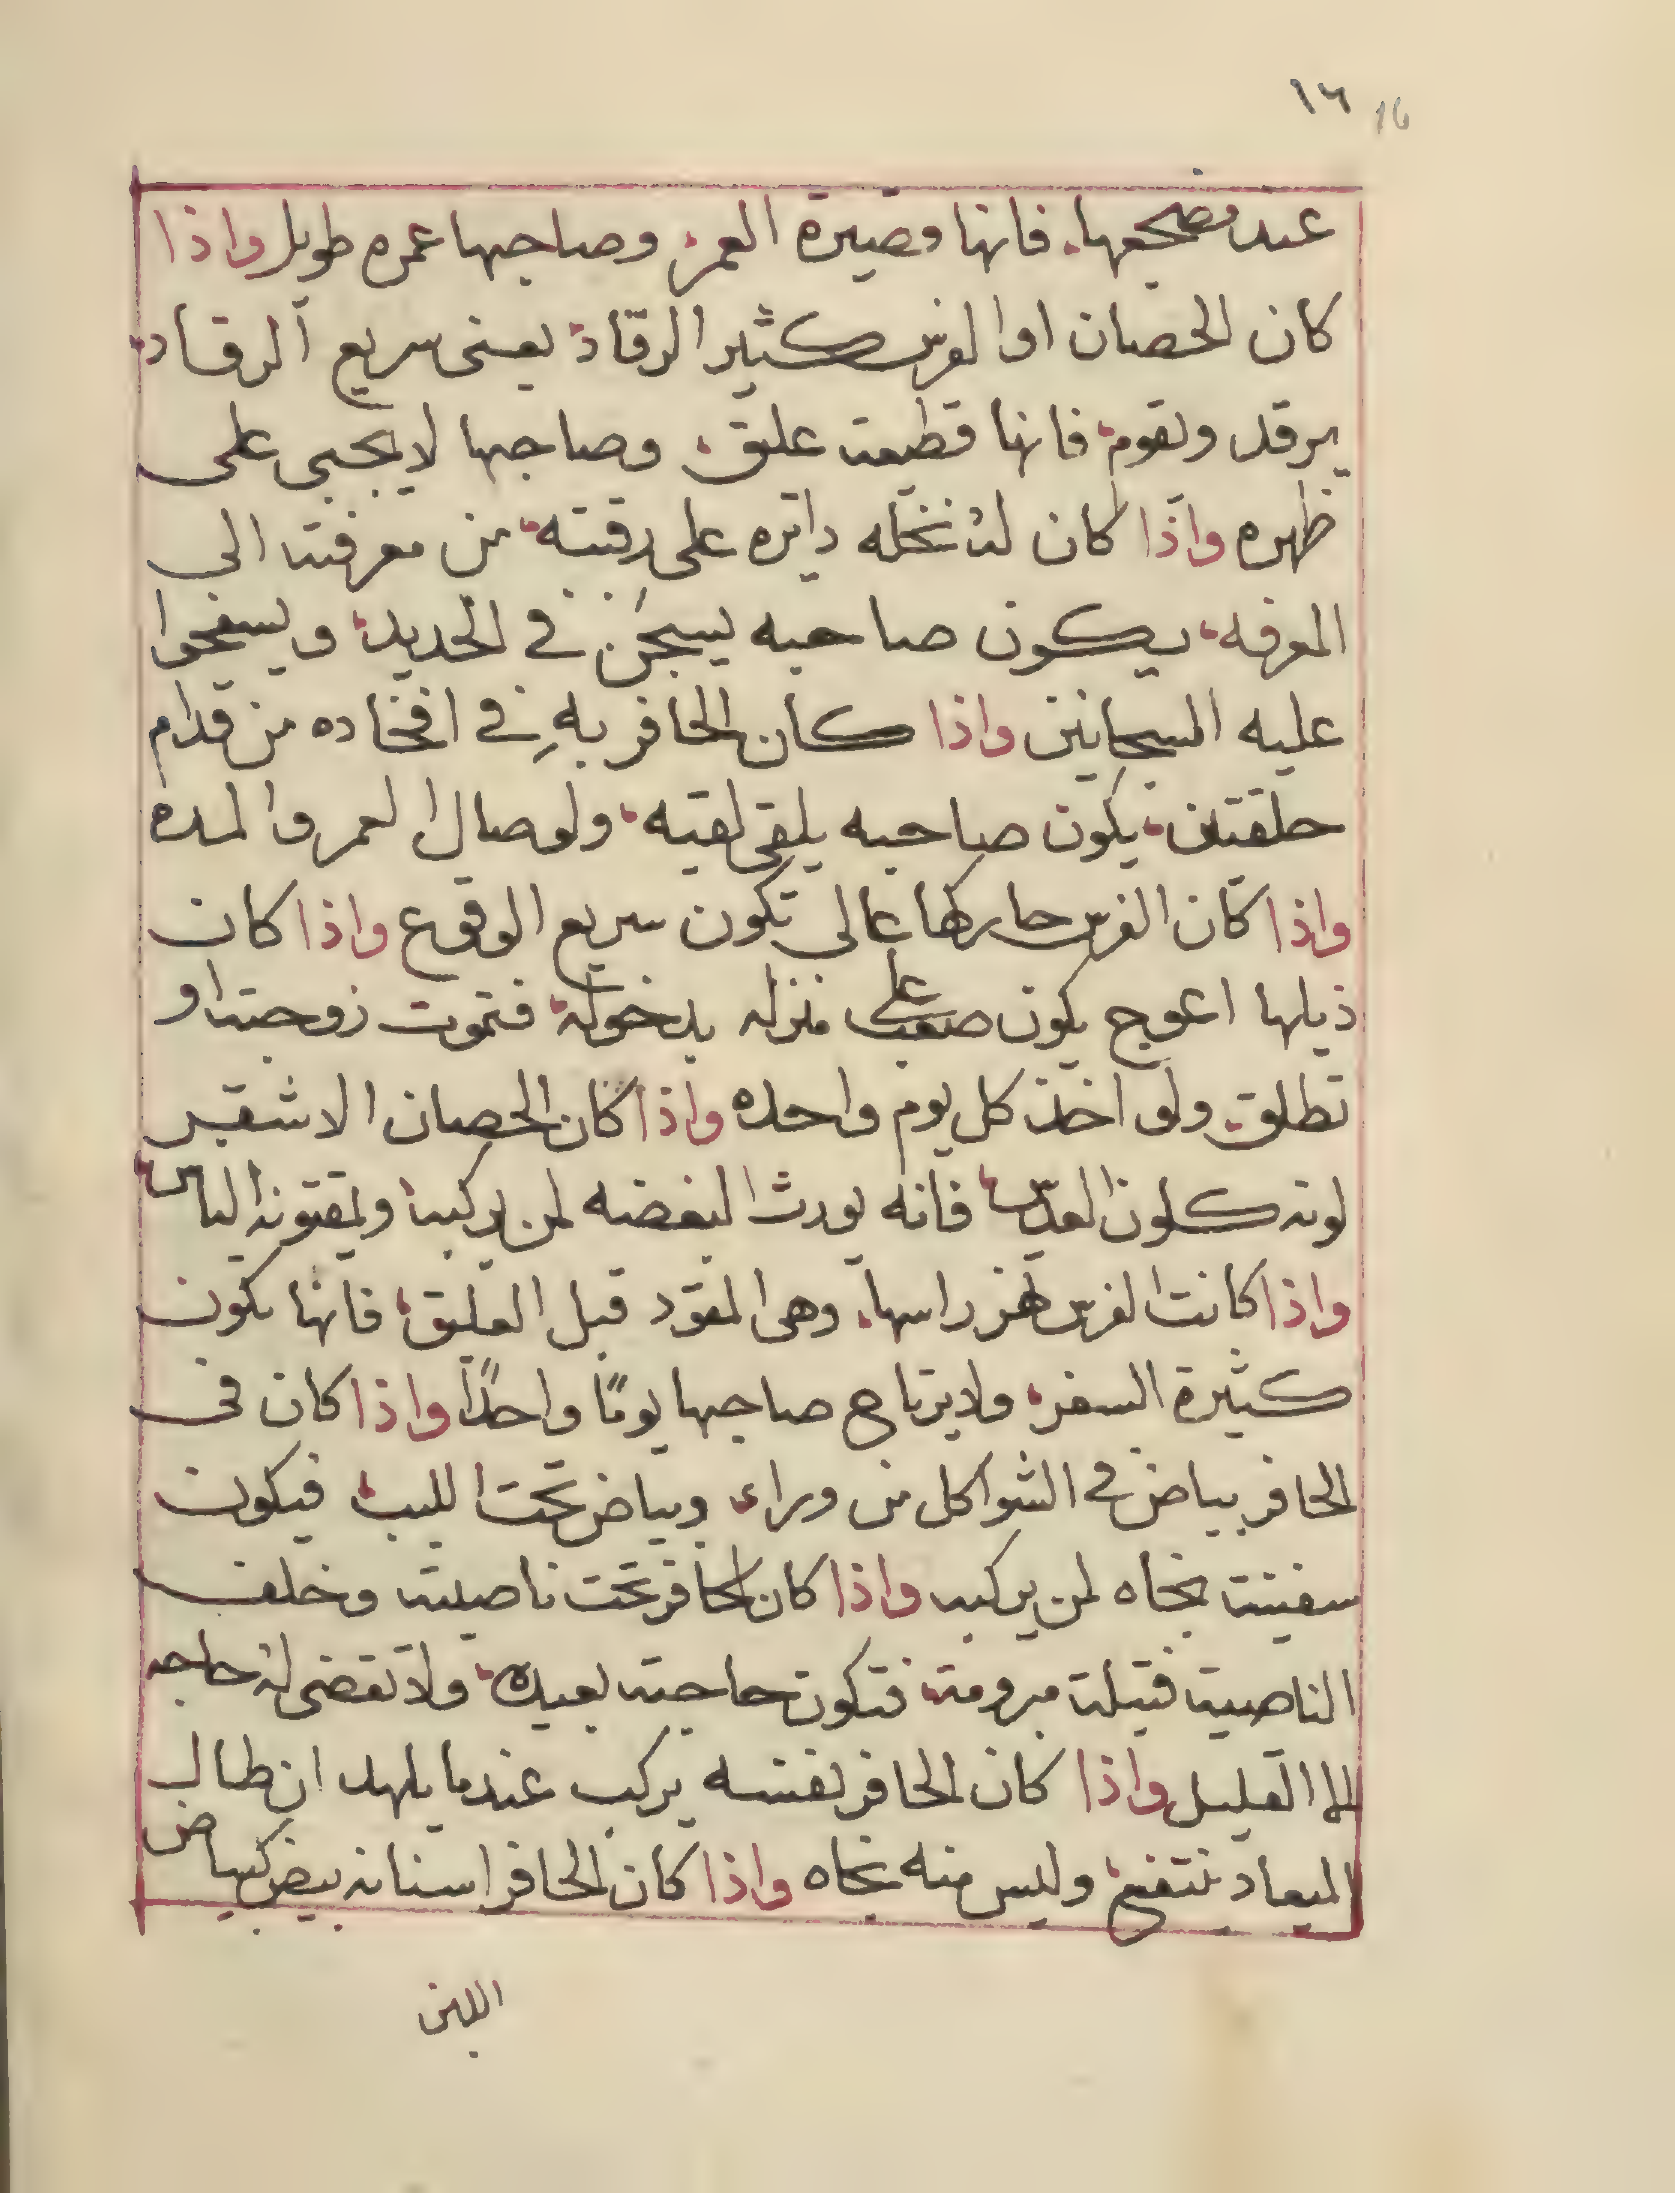 ١٦ 16
عند مضجعها، فانها قصيرة العمر، وصاحبها عمره طويل واذا
كان الحصان او الفرس كثير الرقاد، يعنى سريع الرقاد،
يرقد ويقوم، فانها قطيعت عليق، وصاحبها لا يجى على
ظهره واذا كان له نخله دايره على رقبته، من معرفته الى
المعرفه، يكون صاحبه يسجن في الحديد، ويسفحوا
عليه السجانين واذا كان الحافر به في افخاده من قدام
حلقتان، يكون صاحبه يلقى لقيه، ولو صال العمر والمده
واذا كان الفرس حاركها عالى تكون سريع الوقوع واذا كان
ذيلها اعوج يكون صعب على منزله بدخوله، فتموت زوجته او
تطلق، ولو اخذ كل يوم واحده واذا كان الحصان الاشقر
لونه كلون العدس، فانه يورث البغضه لمن يركبه ويمقتونه الناس
واذا كانت الفرس تهز راسها، وهى المقود قبل العليق، فانها تكون
كثيرة السفر، ولا يرتاح صاحبها يومًا واحدًا واذا كان فى
الحافر بياض في الشواكل من وراء، وبياض تحت اللبب، فيكون
سفينت نجاه لمن يركبه واذا كان الحافر تحت ناصيته وخلف
الناصيت فتيلت مبرومة، فتكون حاجته بعيده، ولا تقضى له حاجه
الا القليل واذا كان الحافر نفسه يركب عندما يلهد ان طال
الميعاد ينتفخ، وليس منه نجاه واذا كان الحافر اسنانه بيض كبياض
اللبن